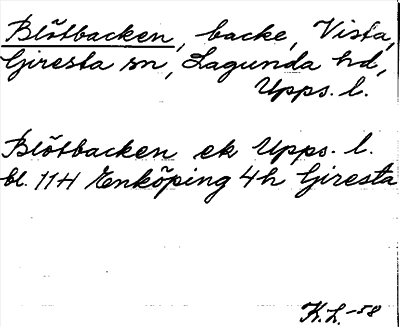 Blötbacken, backe, Vista,
Giresta sn, Lagunda hd,
Upps. l.
Blötbacken ek Upps. l.
bl. 11H Enköping 4h Giresta
K.L. -58